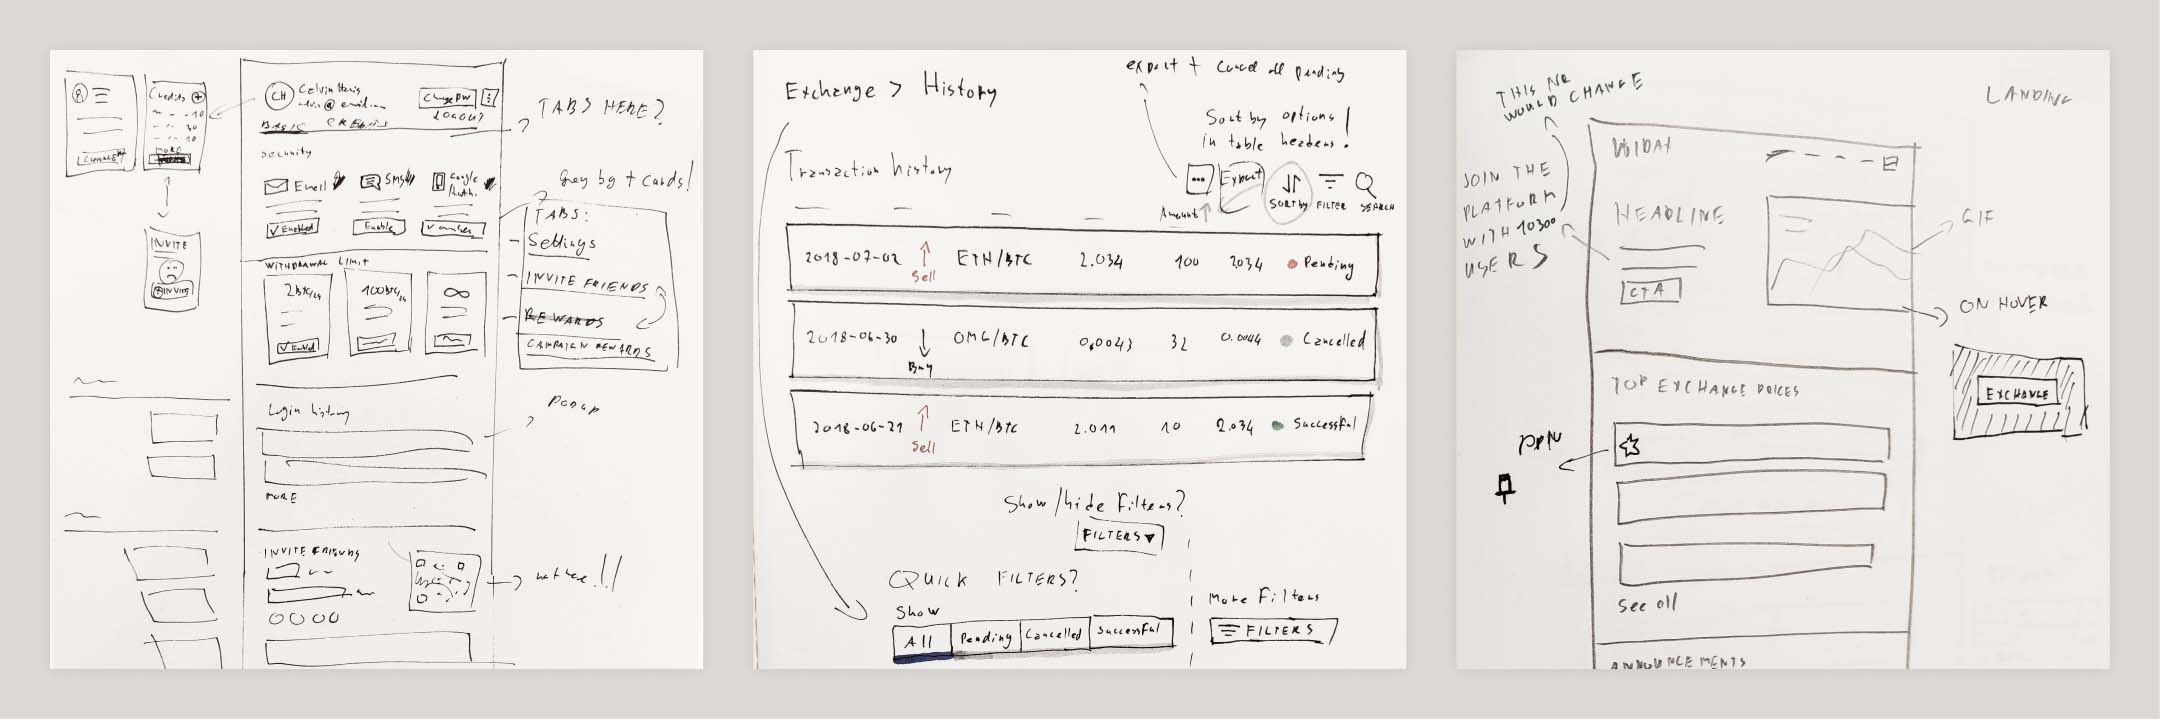 Credits
MORE
CHANGE
INVITE
INVITE
CH
Calvin Harris
@ email.com
Change PW
LOGOUT
BASIC CREDITS
TABS HERE?
Security
Email
SMS
Google
Auth.
✓ Enabled
Enable
Grey bg + cards!
TABS:
Settings
INVITE FRIENDS
REWARDS
CAMPAIGN REWARDS
WITHDRAWAL LIMIT
2BTC/24
100BTC/24
∞
✓ Enabled
Login history
POPUP
MORE
INVITE FRIENDS
not here!!
Exchange > History
export + cancel all pending
Sort by options
in table headers!
Transaction history
Export
Amount
SORT by
FILTER
SEARCH
2018-07-02 Sell ETH/BTC 2.034 100 2034 Pending
2018-06-30 Buy OMG/BTC 0,0043 32 0.0044 Cancelled
2018-06-21 Sell ETH/BTC 2.011 10 2.034 Successful
Show/hide Filters?
FILTERS
QUICK FILTERS?
Show
All
Pending
Cancelled
Successful
More Filters
FILTERS
THIS NR
WOULD CHANGE
LANDING
JOIN THE
PLATFORM
WITH 10300
USERS
HEADLINE
CTA
GIF
ON HOVER
EXCHANGE
TOP EXCHANGE PRICES
PIN
See all
ANNOUNCEMENTS